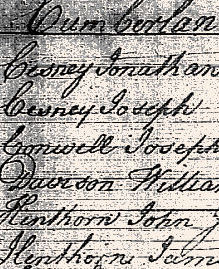 Cumberlan
Cewney Jonathan
Cewney Joseph
Cromwell Joseph
Davison Willia
Henthorn John
Henthorn Jam